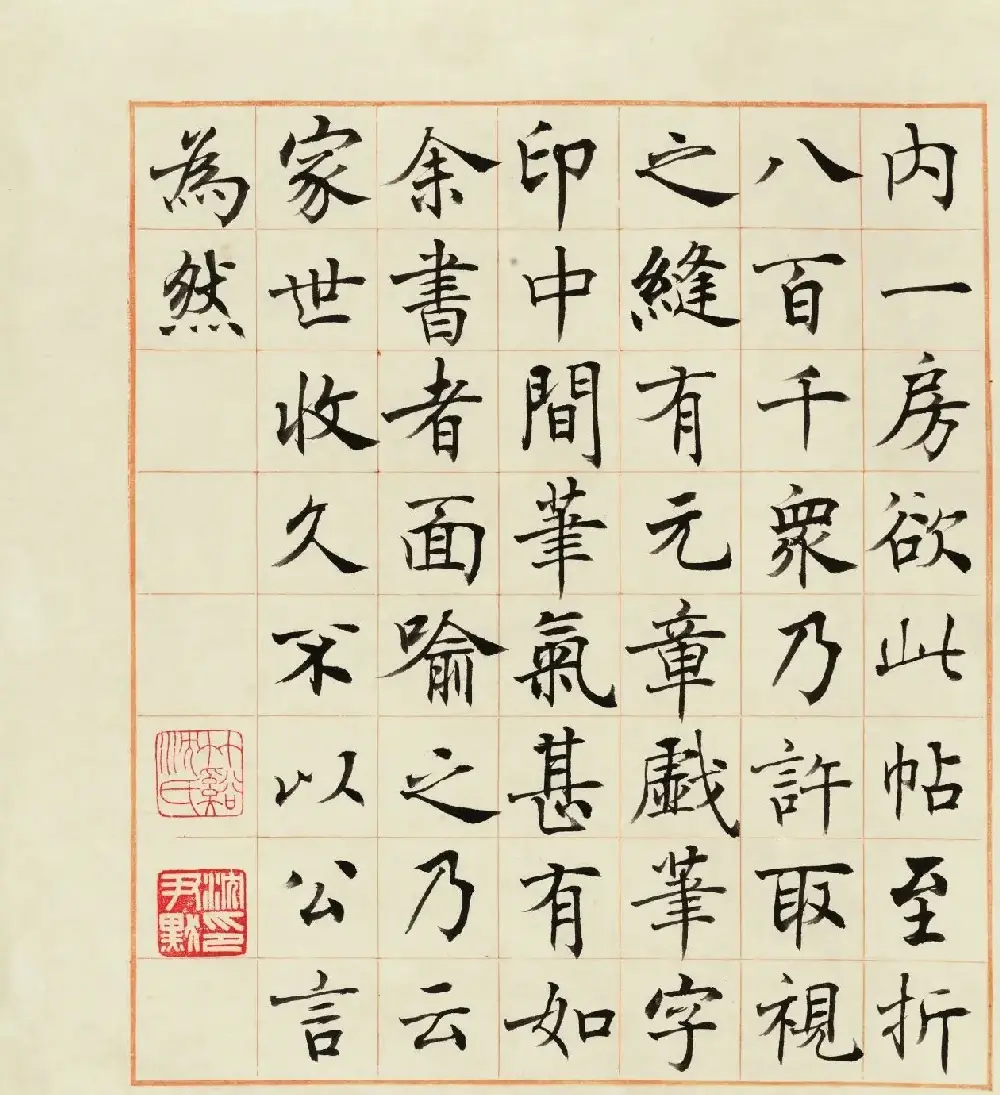 内一房欲此帖至折
八百千眾乃許取視
之縫有元章戲筆字
印中間筆氣甚有如
余書者面喻之乃云
家世收久不以公言
為然
竹谿沈氏
沈尹默印